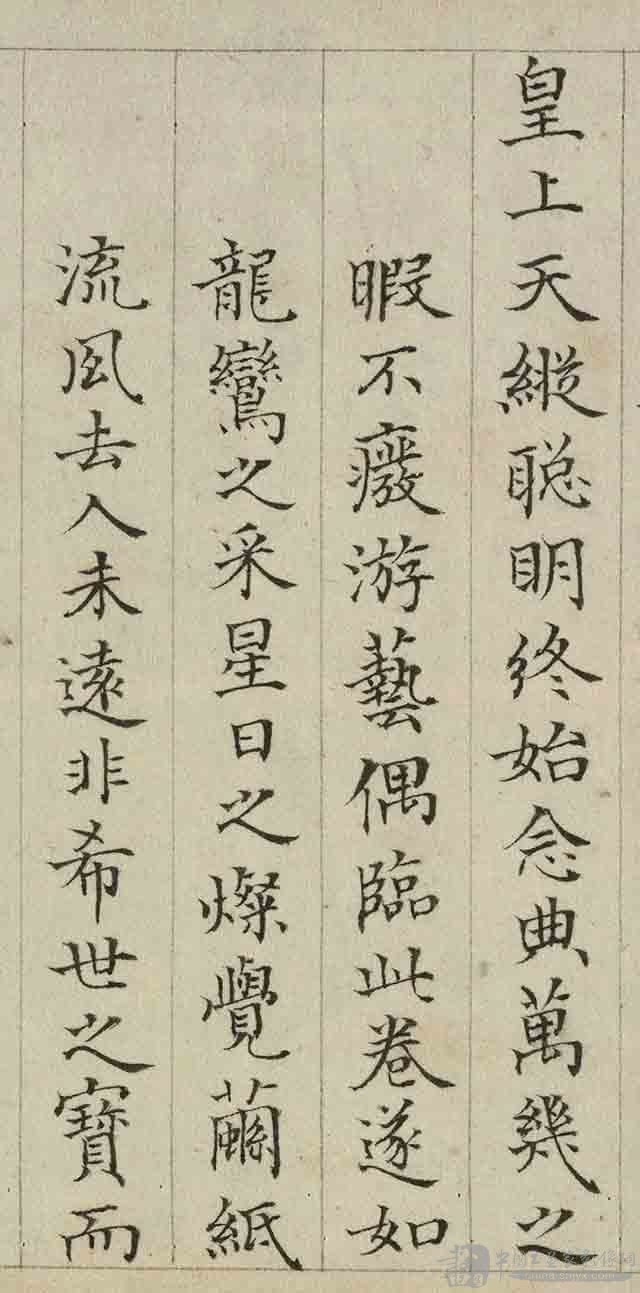 皇上天縱聰明終始念典萬幾之
暇不癈游藝偶臨此卷遂如
龍鸞之采星日之燦覺繭紙
流風去人未遠非希世之寶而
www.cnsjyx.com